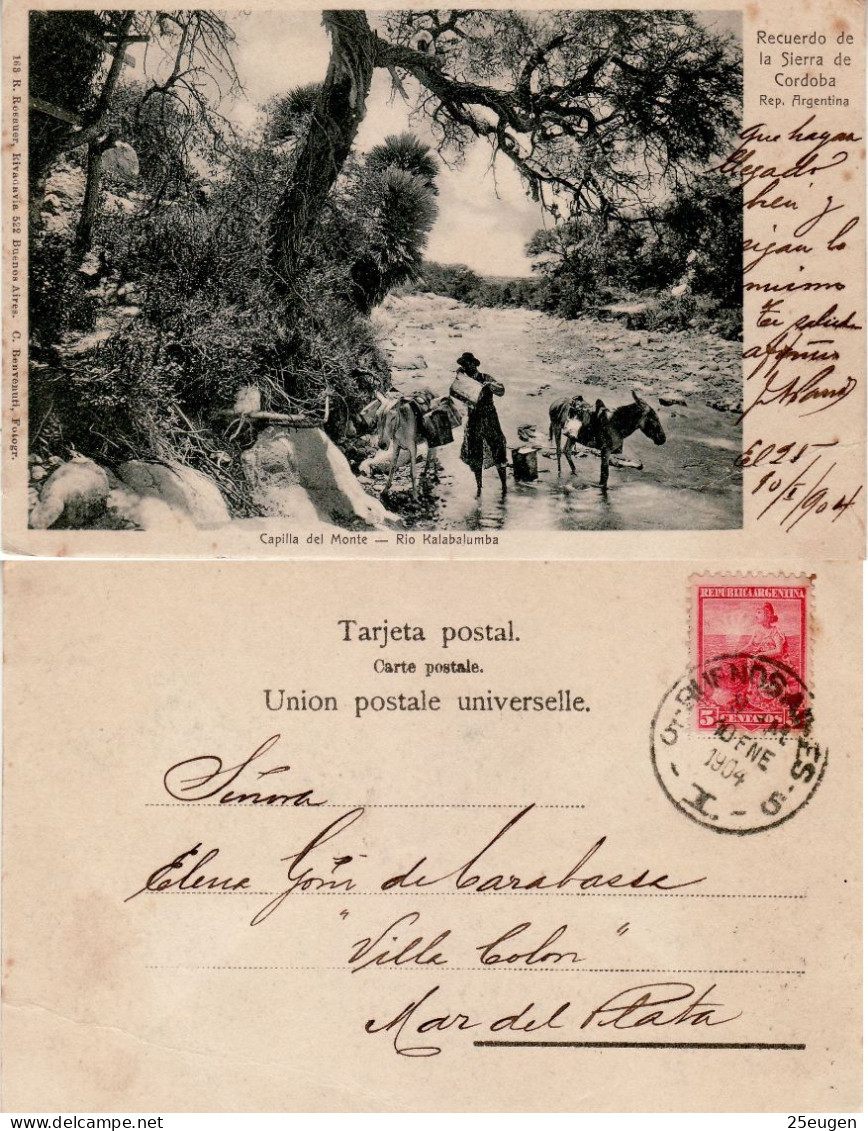 163 R. Rosauer, Rivadavia 522 Buenos Aires. C. Benvenuti, Fotogr.
Recuerdo de
la Sierra de
Cordoba
Rep. Argentina
Que hayan
llegado
bien y
sigan lo
mismo
Te saluda
El 25
10/I/904
Capilla del Monte — Rio Kalabalumba
Tarjeta postal.
Carte postale.
Union postale universelle.
REPUBLICA ARGENTINA
5 CENTAVOS
BUENOS AIRES
10 ENE
1904
Señora
Elena Goñi de Carabassa
"Villa Colon"
Mar del Plata
25eugen
Delcampe.net